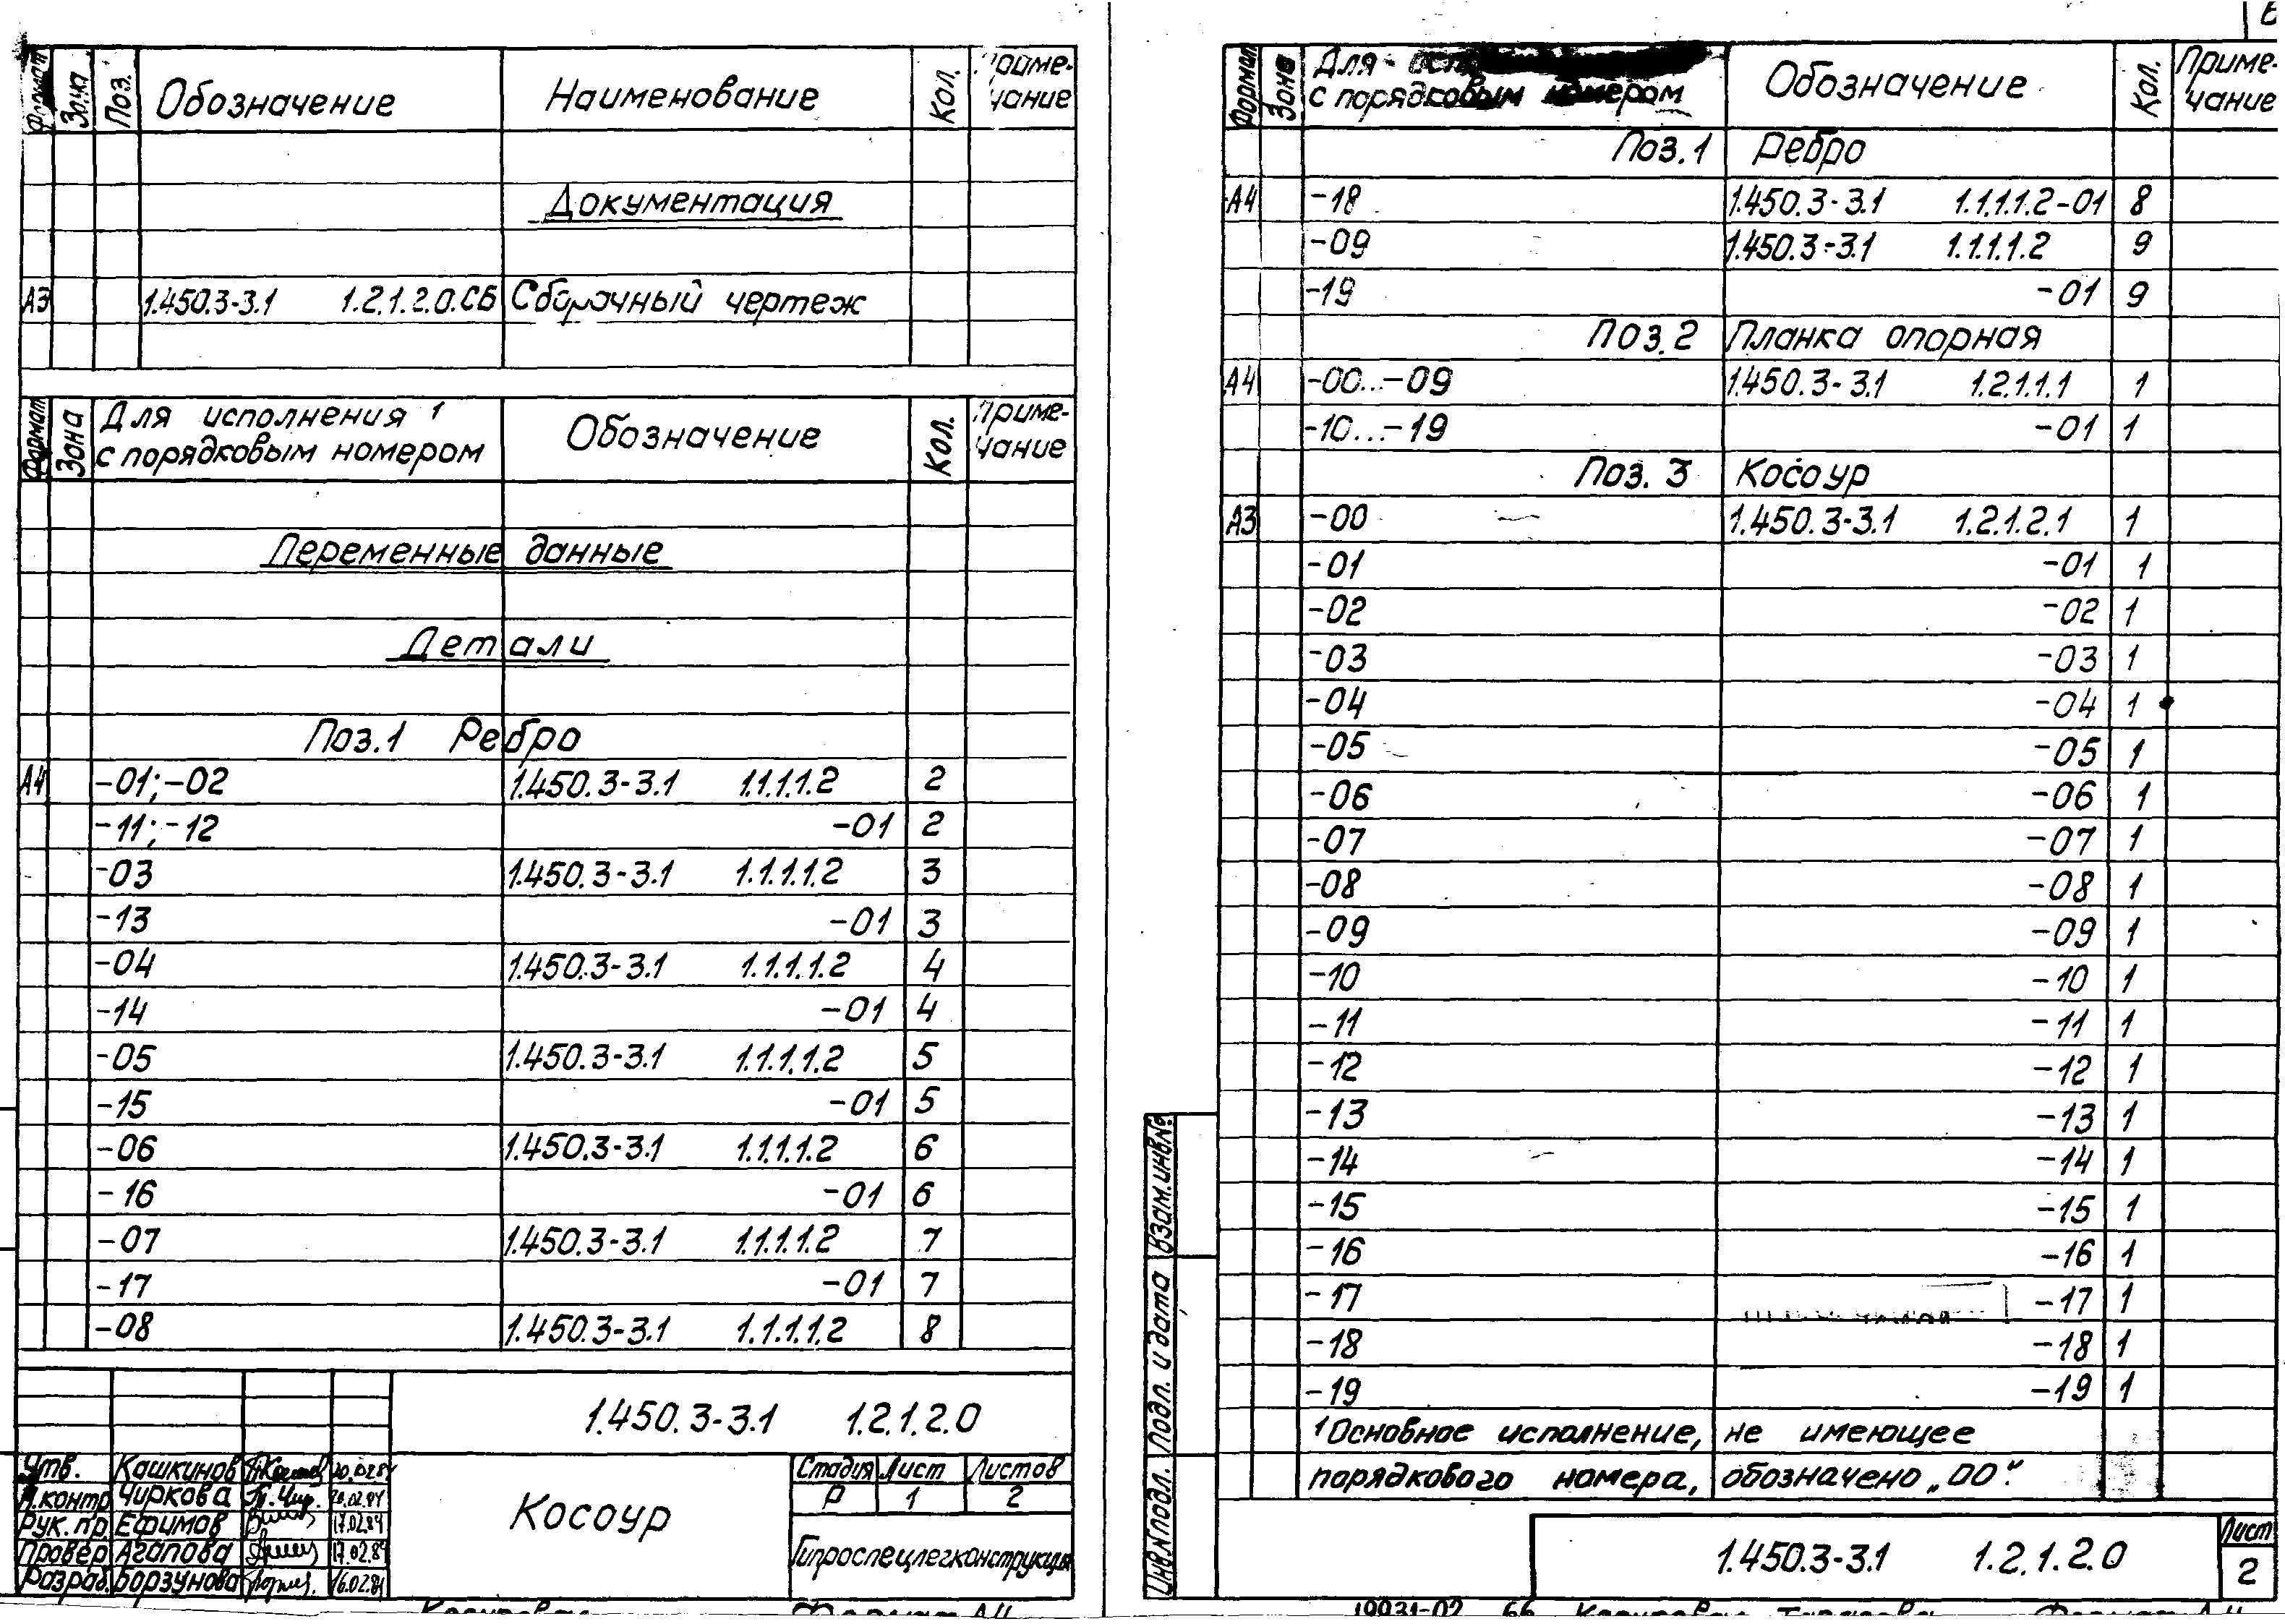 Формат Зона Поз. Обозначение Наименование Кол. Приме-
чание
Документация
А3 1.450.3-3.1 1.2.1.2.0.СБ Сборочный чертеж
Формат Зона Для исполнения 1 Обозначение Кол. Приме-
с порядковым номером чание
Переменные данные
Детали
Поз.1 Ребро
А4 -01; -02 1.450.3-3.1 1.1.1.1.2 2
-11; -12 -01 2
-03 1.450.3-3.1 1.1.1.1.2 3
-13 -01 3
-04 1.450.3-3.1 1.1.1.1.2 4
-14 -01 4
-05 1.450.3-3.1 1.1.1.1.2 5
-15 -01 5
-06 1.450.3-3.1 1.1.1.1.2 6
-16 -01 6
-07 1.450.3-3.1 1.1.1.1.2 7
-17 -01 7
-08 1.450.3-3.1 1.1.1.1.2 8
1.450.3-3.1 1.2.1.2.0
Утв. Кашкинов 20.02.84
Н.контр. Чиркова 20.02.84
Рук.пр. Ефимов 17.02.84
Провер. Агапова 17.02.84
Разраб. Борзунова 16.02.84
Косоур
Стадия Лист Листов
Р 1 2
Гипроспецлегконструкция
Формат А4
Формат Зона Для Обозначение Кол. Приме-
с порядковым номером чание
Поз.1 Ребро
А4 -18 1.450.3-3.1 1.1.1.1.2-01 8
-09 1.450.3-3.1 1.1.1.1.2 9
-19 -01 9
Поз.2 Планка опорная
А4 -00...-09 1.450.3-3.1 1.2.1.1.1 1
-10...-19 -01 1
Поз. 3 Косоур
А3 -00 1.450.3-3.1 1.2.1.2.1 1
-01 -01 1
-02 -02 1
-03 -03 1
-04 -04 1
-05 -05 1
-06 -06 1
-07 -07 1
-08 -08 1
-09 -09 1
-10 -10 1
-11 -11 1
-12 -12 1
-13 -13 1
-14 -14 1
-15 -15 1
-16 -16 1
-17 -17 1
-18 -18 1
-19 -19 1
1 Основное исполнение, не имеющее
порядкового номера, обозначено „00".
Инв.№ подл. Подп. и дата Взам.инв.№
1.450.3-3.1 1.2.1.2.0
Лист
2
19031-02 66